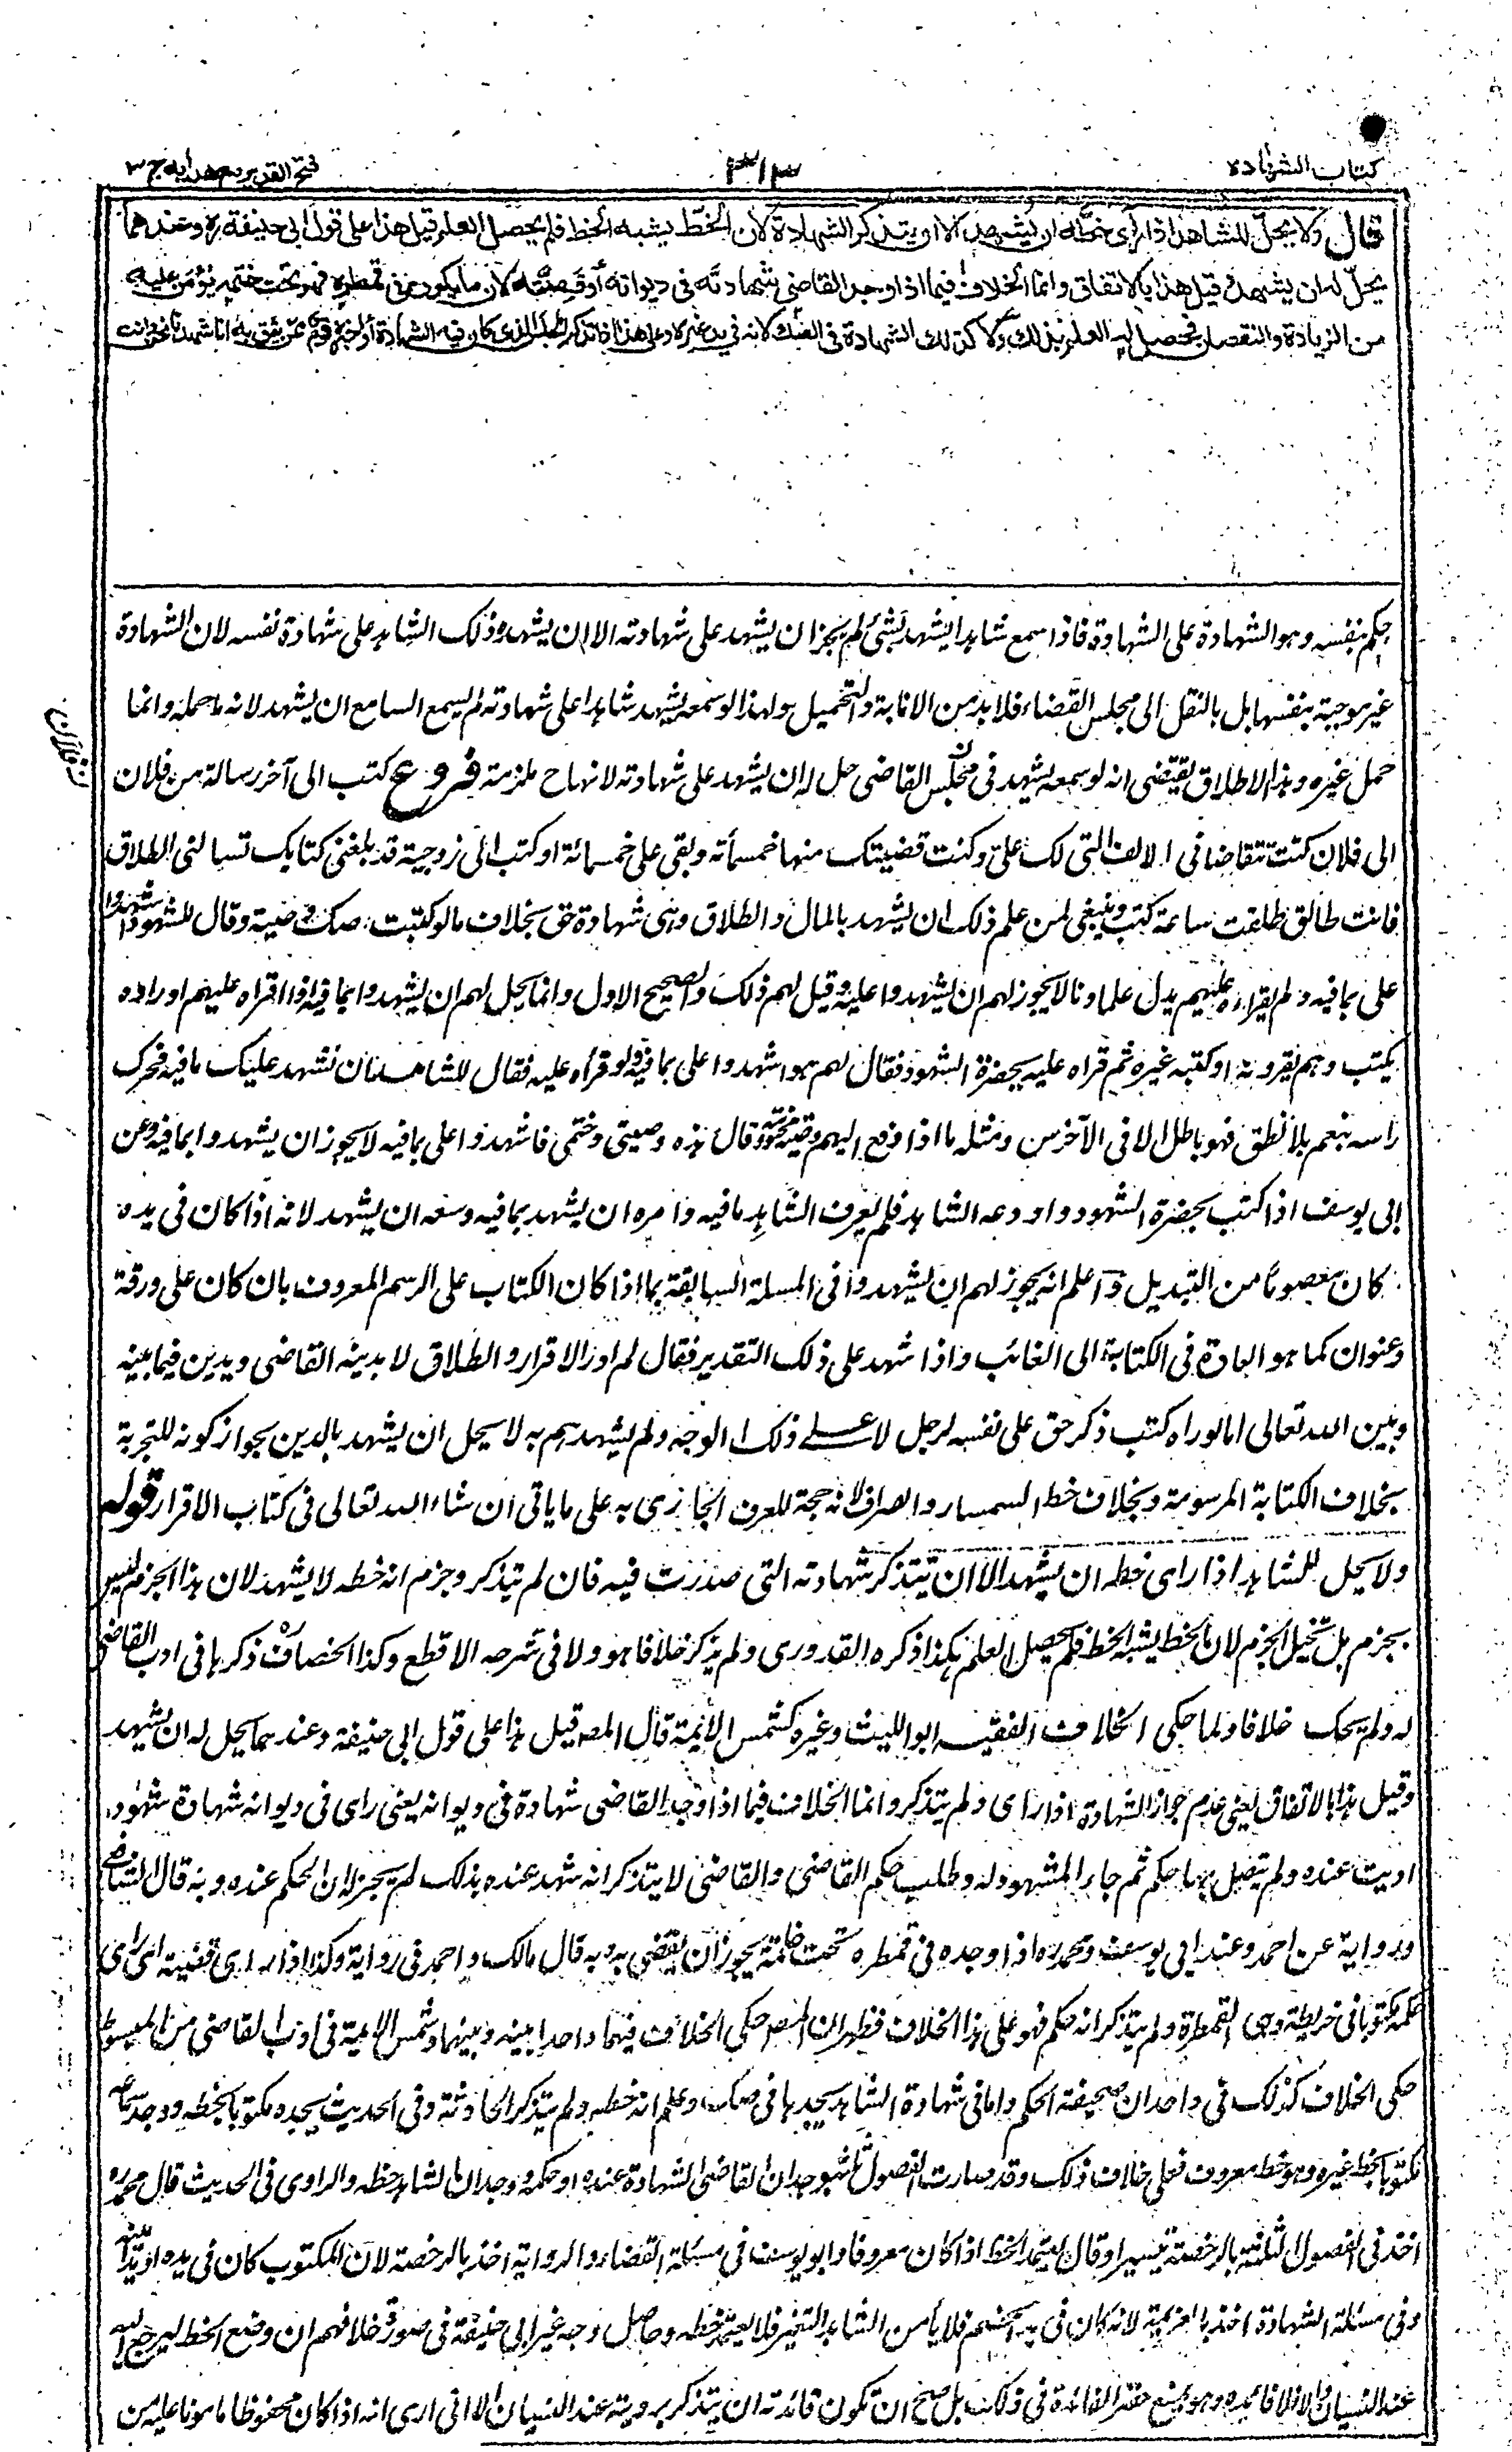 كتاب الشهادة
٣١٣
فتح القدير مع هدايه ج ٣
قال ولا يحل للشاهد اذا رأى خطه ان يشهد الا ان يتذكر الشهادة لان الخط يشبه الخط فلم يحصل العلم قيل هذا على قول ابي حنيفة ره وعندهما
يحل له ان يشهد وقيل هذا بالاتفاق وانما الخلاف فيما اذا وجد القاضي شهادته في ديوانه أو قضيته لان ما يكون في قمطره فهو تحت ختمه يؤمن عليه
من الزيادة والنقصان فحصل له العلم بذلك ولا كذلك الشهادة في الصك لانه في يد غيره وعلى هذا اذا تذكر المجلس الذي كان فيه الشهادة أو اخبره قوم ممن يثق به انا شهدنا نحن وانت
حكم بنفسه وهو الشهادة على الشهادة فاذا سمع شاهدا يشهد بشئ لم يجز ان يشهد على شهادته الا ان يشهده ذلك الشاهد على شهادة نفسه لان الشهادة
غير موجبة بنفسها بل بالنقل الى مجلس القضاء فلا بد من الانابة والتحميل ولهذا لو سمعه يشهد شاهدا على شهادته لم يسع السامع ان يشهد لانه ما حمله وانما
حمل غيره وهذا الاطلاق يقتضى انه لو سمعه يشهد في مجلس القاضي حل له ان يشهد على شهادته لانها ح ملزمة فروع كتب الى آخر رسالة من فلان
الى فلان كتبت تتقاضاني الالف التي لك علي وكنت قضيتك منها خمسمائة وبقي علي خمسمائة او كتب الى زوجته قد بلغني كتابك تسألني الطلاق
فانت طالق طلقت ساعة كتب وينبغي لمن علم ذلك ان يشهد بالمال والطلاق وهى شهادة حق بخلاف ما لو كتبت صك وصية وقال للشهود اشهدوا
علي بما فيه ولم يقرأه عليهم قال علماؤنا لا يجوز لهم ان يشهدوا عليه وقيل لهم ذلك والصحيح الاول وانما يحل لهم ان يشهدوا بما فيه اذا قراه عليهم او راوه
يكتب وهم يقرونه او كتبه غيره ثم قراه عليه بحضرة الشهود فقال لهم هو اشهدوا علي بما فيه ولو قراه عليه فقال للشاهدان نشهد عليك بما فيه فحرك
راسه بنعم بلا نطق فهو باطل الا في الاخرس ومثله ما اذا دفع اليهم وصية مختومة وقال هذه وصيتي وختمي فاشهدوا علي بما فيه لا يجوز ان يشهدوا بما فيه وعن
ابي يوسف اذا كتب بحضرة الشهود واودعه الشاهد فلم يعرف الشاهد ما فيه وامره ان يشهد بما فيه وسعه ان يشهد لانه اذا كان في يده
كان معصوما من التبديل واعلم انه يجوز لهم ان يشهدوا في المسئلة السابقة بما اذا كان الكتاب على الرسم المعروف بان كان على ورقة
وعنوان كما هو العادة في الكتابة الى الغائب واذا شهد على ذلك التقدير فقال لم ارد الاقرار والطلاق لا يدينه القاضي ويدين فيما بينه
وبين الله تعالى اما لو راه كتب ذكر حق على نفسه لرجل لا على ذلك الوجه ولم يشهدهم به لا يحل ان يشهد بالدين لجواز كونه للتجربة
بخلاف الكتابة المرسومة وبخلاف خط السمسار والصراف لانه حجة للعرف الجاري به على ما ياتي ان شاء الله تعالى في كتاب الاقرار قوله
ولا يحل للشاهد اذا راى خطه ان يشهد الا ان يتذكر شهادته التي صدرت فيه فان لم يتذكر وجزم انه خطه لا يشهد لان هذا الجزم ليس
بجزم بل تخيل الجزم لان الخط يشبه الخط فلم يحصل العلم هكذا ذكره القدوري ولم يذكر خلافا هو ولا في شرحه الاقطع وكذا الخصاف ذكرها في ادب القاضي
له ولم يحك خلافا ولما حكى الخلاف الفقيه ابو الليث وغيره كشمس الائمة قال المص قيل هذا على قول ابي حنيفة وعندهما يحل له ان يشهد
وقيل هذا بالاتفاق يعني عدم جواز الشهادة اذا راى ولم يتذكر وانما الخلاف فيما اذا وجد القاضي شهادة في ديوانه يعني راى في ديوانه شهادة شهود
اديت عنده ولم يتصل بها حكم ثم جاء المشهود له وطلب حكم القاضي والقاضي لا يتذكر انه شهد عنده بذلك لم يجز له ان يحكم عنده وبه قال الشافعي
ورواية عن احمد وعند ابي يوسف ومحمد ره اذا وجده في قمطره تحت خاتمه يجوز ان يقضي به وبه قال مالك واحمد في رواية وكذا اذا راى قضيته اى راى
حكمه مكتوبا في خريطة وهى القمطرة ولم يتذكر انه حكم فهو على هذا الخلاف فظهر ان المص حكى الخلاف فيهما واحدا بينه وبينهما وشمس الائمة في ادب القاضي من المبسوط
حكى الخلاف كذلك في واحد ان صحيفة الحكم واما في شهادة الشاهد يجدها في صك وعلم انه خطه ولم يتذكر الحادثة وفي الحديث يجده مكتوبا بخطه ووجد سماعه
مكتوبا بخط غيره وهو خط معروف فعلى خلاف ذلك وقد صارت الفصول ثلاثة وجدان القاضي الشهادة عنده او حكمه ووجدان الشاهد خطه والراوي في الحديث قال محمد ره
اخذ في الفصول الثلثة بالرخصة تيسيرا وقال يعتمد الخط اذا كان معروفا وابو يوسف في مسئلة القضاء والرواية اخذ بالرخصة لان المكتوب كان في يده او يد امينه
وفي مسئلة الشهادة اخذ بالعزيمة لانه كان في يد الخصم فلا يأمن الشاهد التغير فلا يعتمد خطه وحاصل وجه غير ابي حنيفة في صور خلافهم ان وضع الخط ليرجع اليه
عند النسيان والا فلا فائدة وهو يمنع حصر الفائدة في ذلك بل صح ان تكون فائدته ان يتذكر برويته عند النسيان الا اني ارى انه اذا كان محفوظا مامونا عليه من